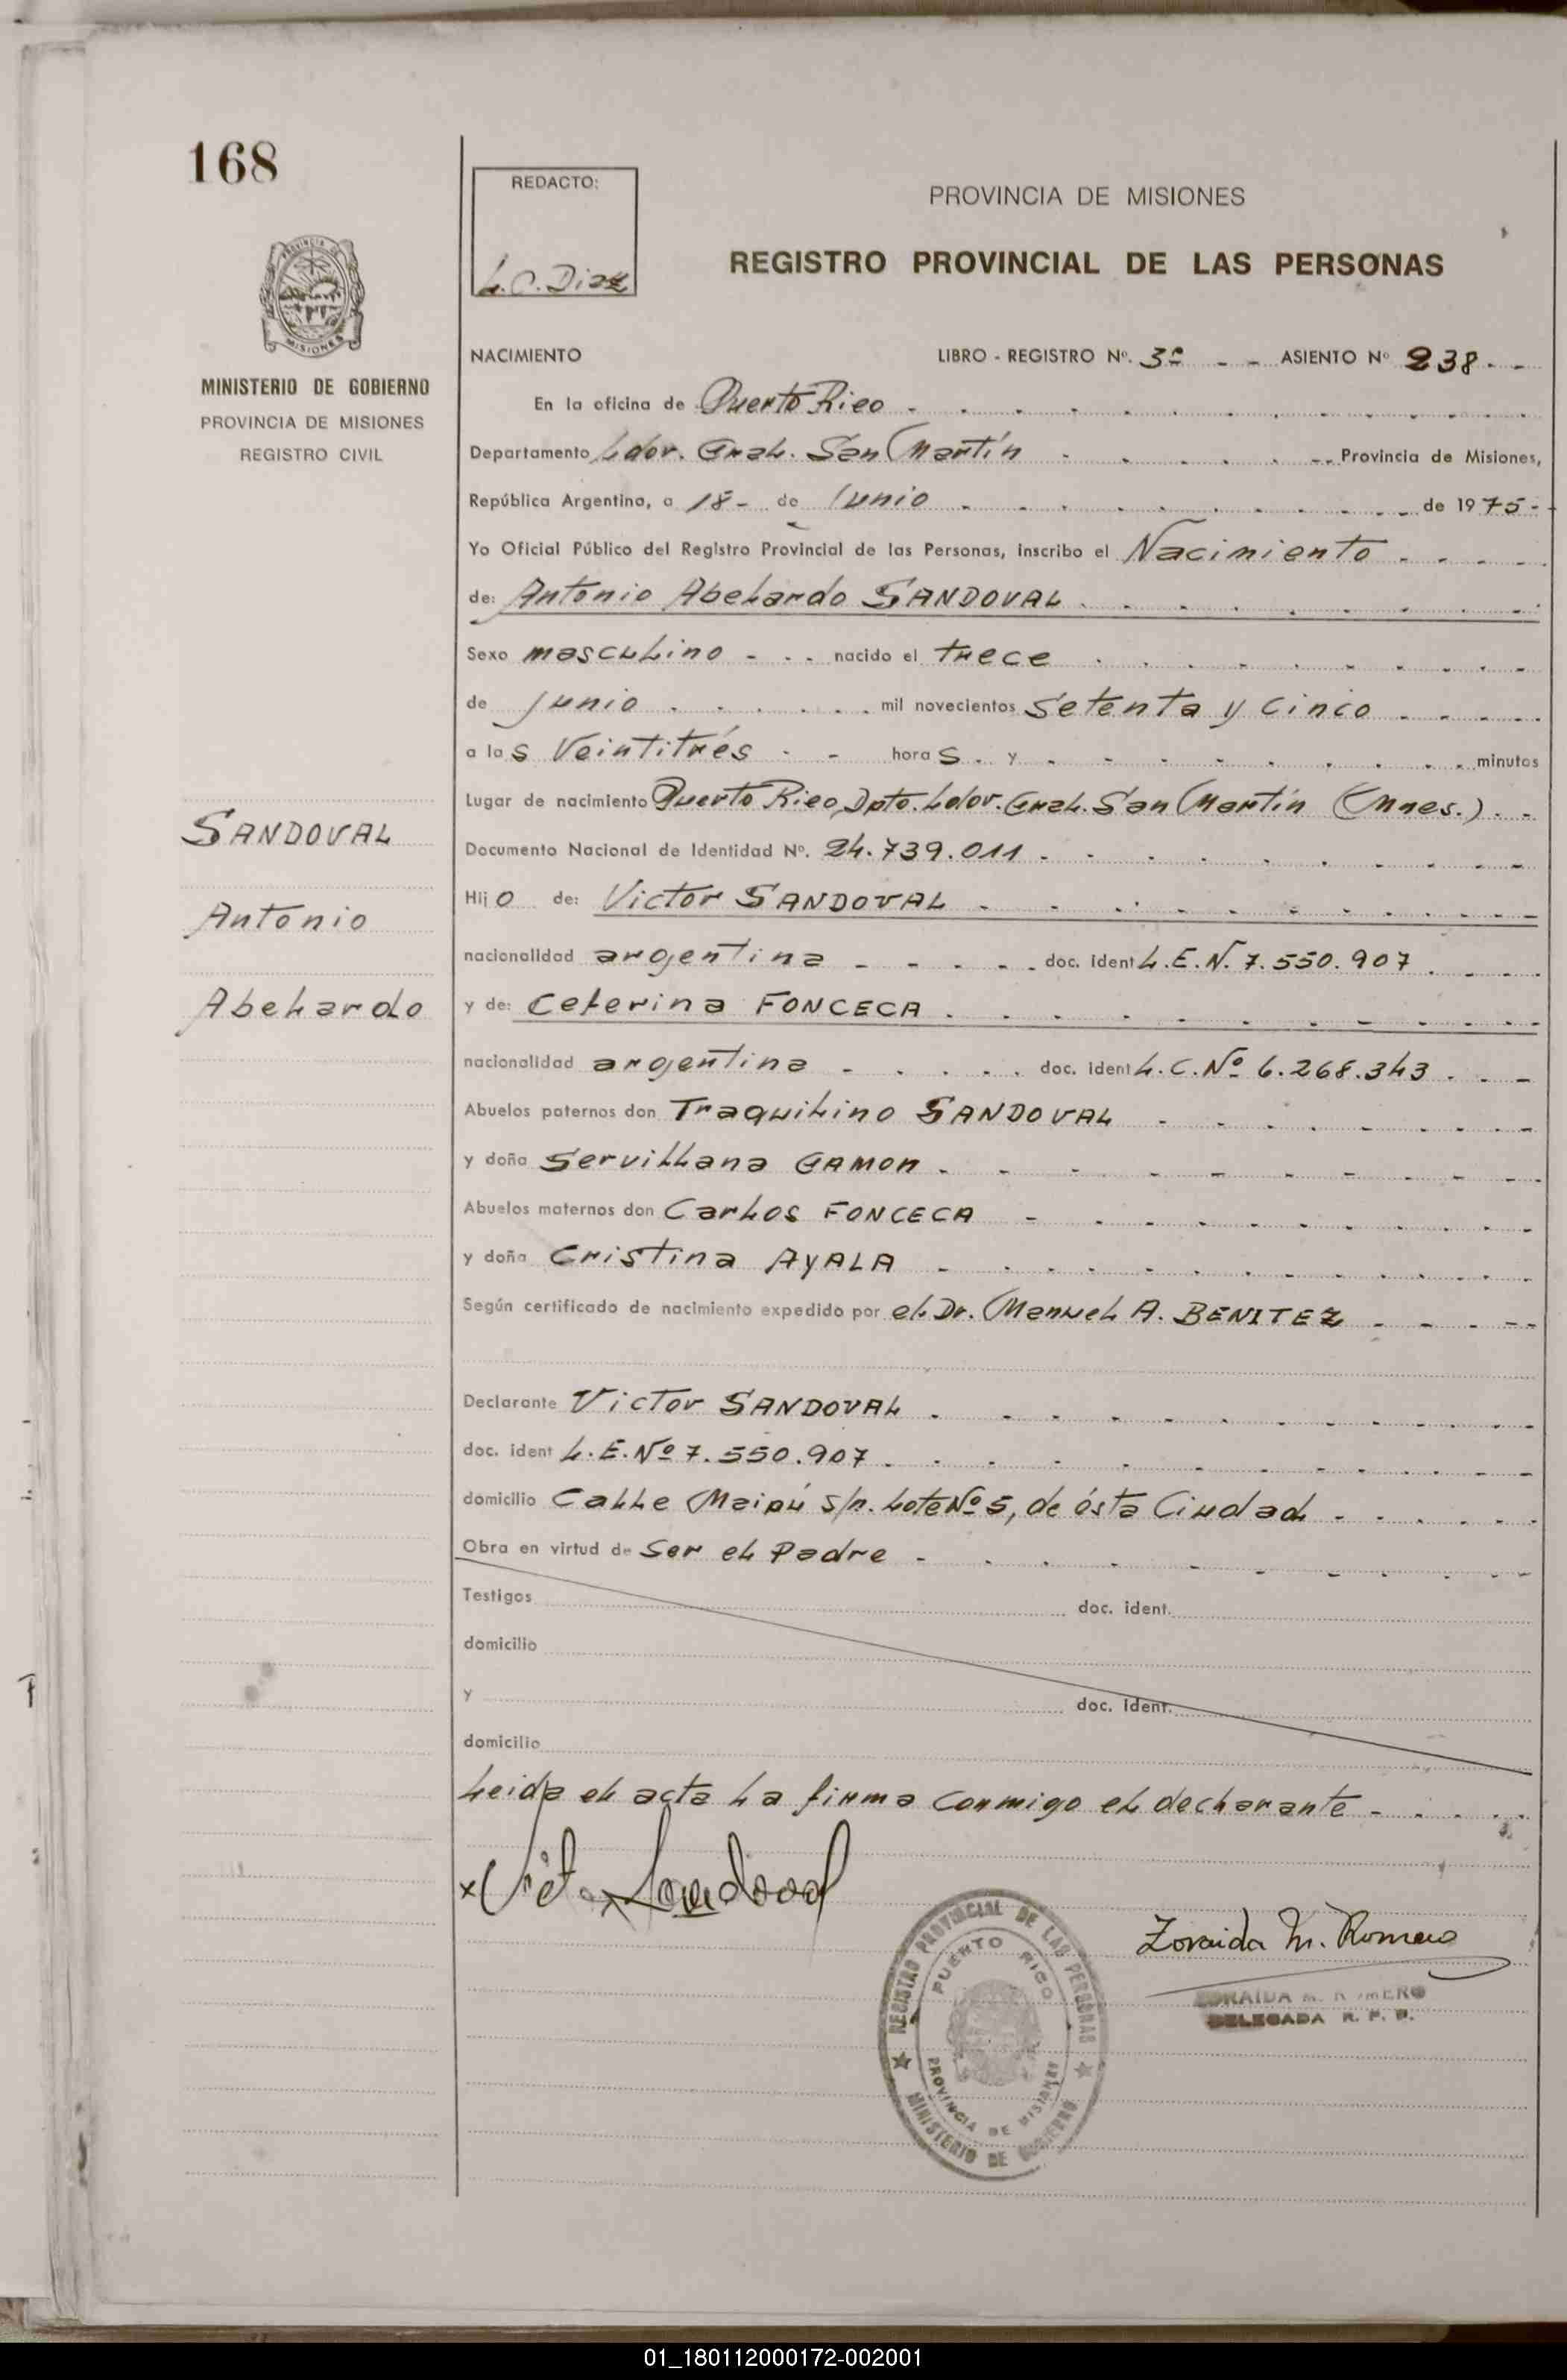 168
PROVINCIA DE
MISIONES
MINISTERIO DE GOBIERNO
PROVINCIA DE MISIONES
REGISTRO CIVIL
SANDOVAL
Antonio
Abelardo
REDACTO:
L.C. Diaz
PROVINCIA DE MISIONES
REGISTRO PROVINCIAL DE LAS PERSONAS
NACIMIENTO LIBRO - REGISTRO Nº. 3º - - ASIENTO Nº 238 - -
En la oficina de Puerto Rico
Departamento Ldor. Gral. San Martín Provincia de Misiones,
República Argentina, a 18 - de Junio de 1975 -
Yo Oficial Público del Registro Provincial de las Personas, inscribo el Nacimiento
de: Antonio Abelardo SANDOVAL
Sexo masculino nacido el trece
de junio mil novecientos setenta y cinco
a las Veintitrés horas y minutos
Lugar de nacimiento Puerto Rico, Dpto. Ldor. Gral. San Martín (Mnes.)
Documento Nacional de Identidad Nº. 24.739.011
Hijo de: Victor SANDOVAL
nacionalidad argentina doc. ident L.E.N. 7.550.907
y de: Ceferina FONCECA
nacionalidad argentina doc. ident L.C.Nº 6.268.343
Abuelos paternos don Traquilino SANDOVAL
y doña Servillana GAMON
Abuelos maternos don Carlos FONCECA
y doña Cristina AYALA
Según certificado de nacimiento expedido por el Dr. Manuel A. BENITEZ
Declarante Victor SANDOVAL
doc. ident L.E.Nº 7.550.907
domicilio Calle Maipú s/n. Lote Nº 5, de ésta Ciudad
Obra en virtud de Ser el Padre
Testigos doc. ident.
domicilio
y doc. ident.
domicilio
Leida el acta la firma conmigo el declarante
x Sandoval
REGISTRO PROVINCIAL DE LAS PERSONAS
PUERTO RICO
PROVINCIA DE MISIONES
MINISTERIO DE GOBIERNO
Zoraida M. Romero
ZORAIDA M. ROMERO
DELEGADA R. P. P.
01_180112000172-002001